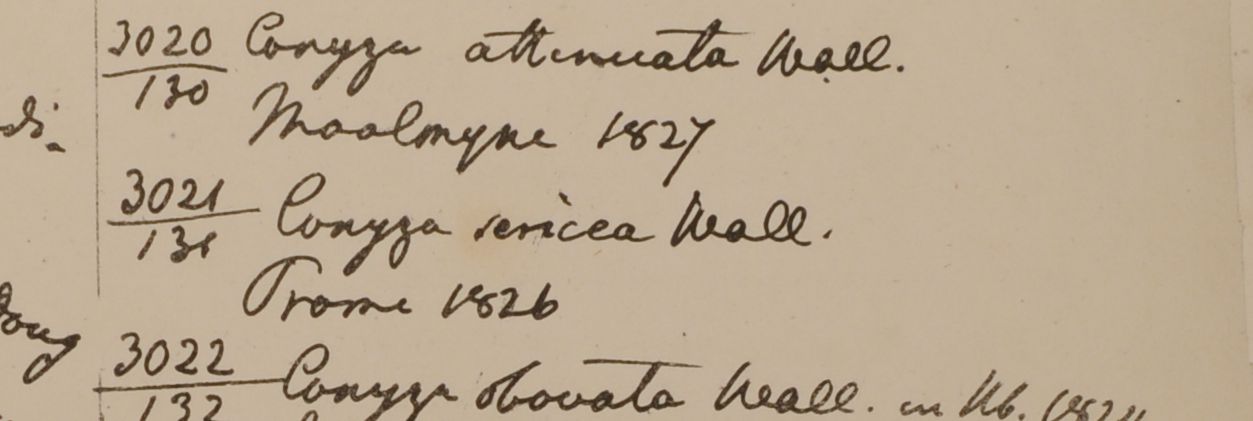 3020 Conyza attenuata Wall.
130
Moalmyne 1827
3021 Conyza sericea Wall.
131
Prome 1826
3022 Conyza obovata Wall. in Hb. 1824
132